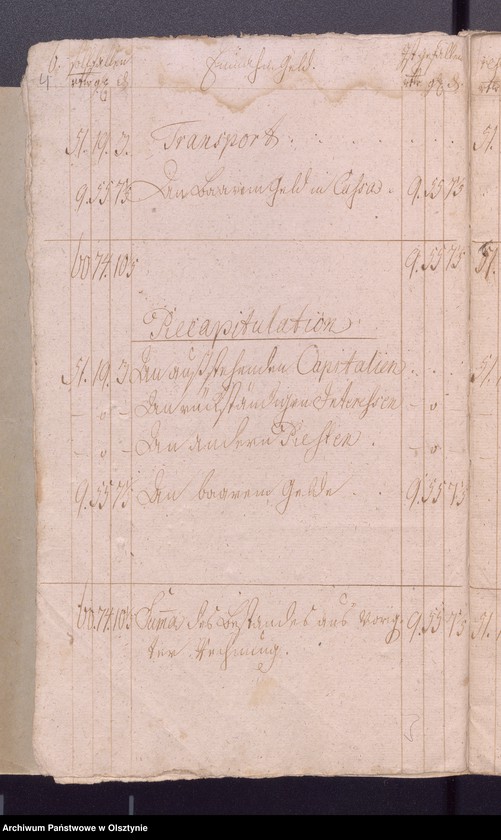 6.
Einnahme Geld.
51. 19. 3. Transport . . . . . .
9. 55 7½ An baarem Geld in Cassa . 9. 55 7½ 51.
60. 74. 10½ 9. 55 7½ 51.
Recapitulation
51. 19. 3. An ausstehenden Capitalien . . . 51.
- o - An rückständigen Interessen - o -
- o - An andern Resten . - o -
9. 55 7½ An baarem Gelde . . 9. 55 7½
60. 74. 10½ Summa des Bestandes aus vorig- 9. 55 7½ 51.
ter Rechnung.